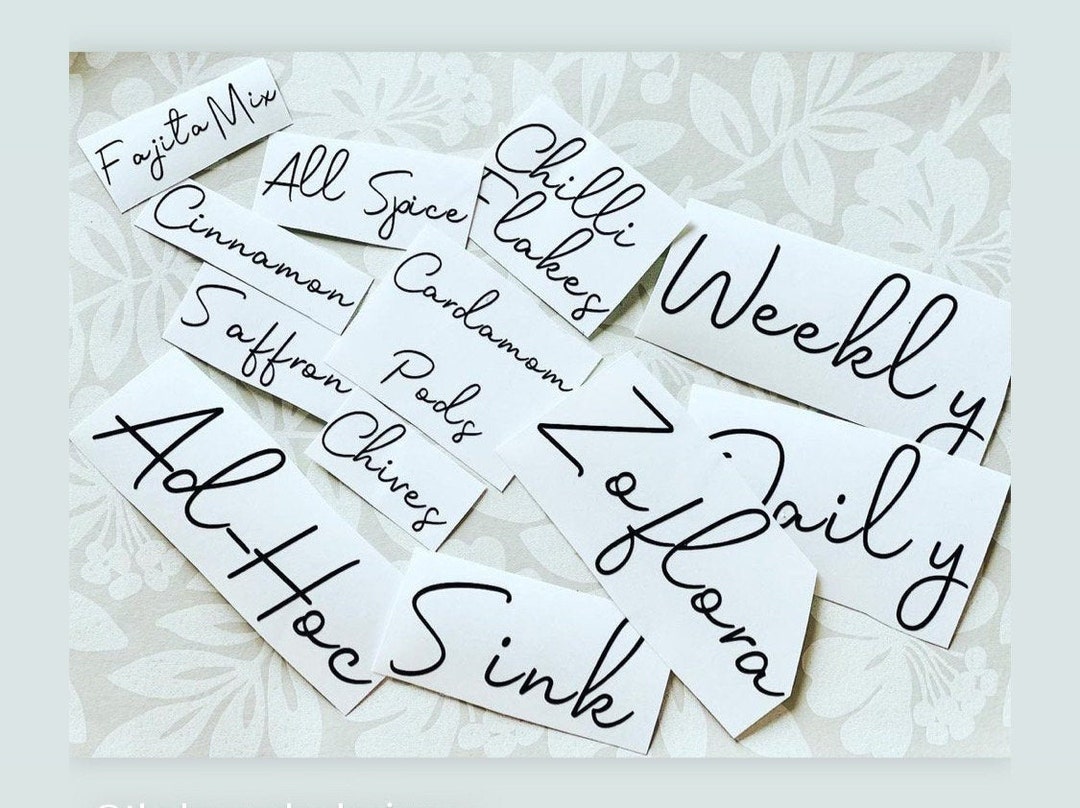 Fajita Mix
All Spice
Chilli
Flakes
Cinnamon
Cardamom
Pods
Saffron
Chives
Weekly
Daily
Zoflora
Ad-Hoc
Sink